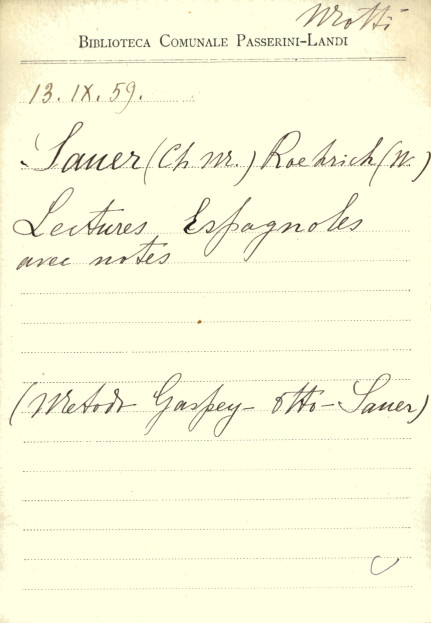 Motti
BIBLIOTECA COMUNALE PASSERINI-LANDI
13.IX.59.
Sauer (Ch. M.) Roehrich (W.)
Lectures Espagnoles
avec notes
(Metodo Gaspey-Otto-Sauer)